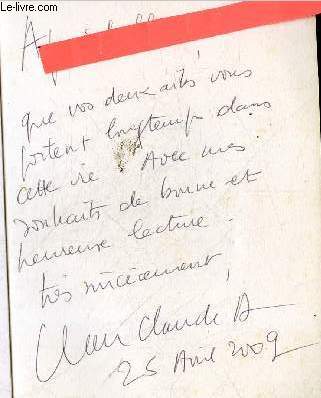 Le-livre.com
A
que vos deux ailes vous
portent longtemps dans
cette vie. Avec mes
souhaits de bonne et
heureuse lecture.
très sincèrement,
Jean Claude A
25 Avril 2009